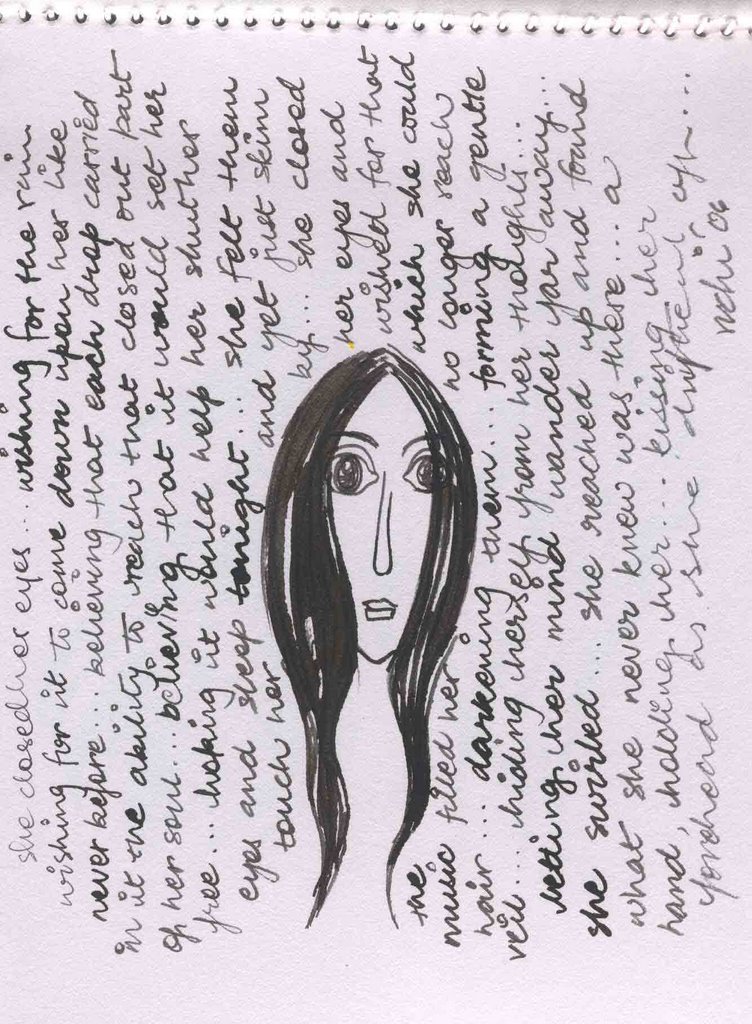 she closed her eyes... wishing for the rain
wishing for it to come down upon her like
never before... believing that each drop carried
in it the ability to reach that closed out part
of her soul... believing that it would set her
free... hoping it would help her shut her
eyes and sleep tonight... she felt them
touch her and yet just skim
by... she closed
her eyes and
wished for that
which she could
no longer reach
the
music filled her
hair... darkening them... forming a gentle
veil... hiding herself from her thoughts...
letting her mind wander far away...
she swirled... she reached up and found
what she never knew was there... a
hand, holding her... kissing her
forehead as she drifted off....
06